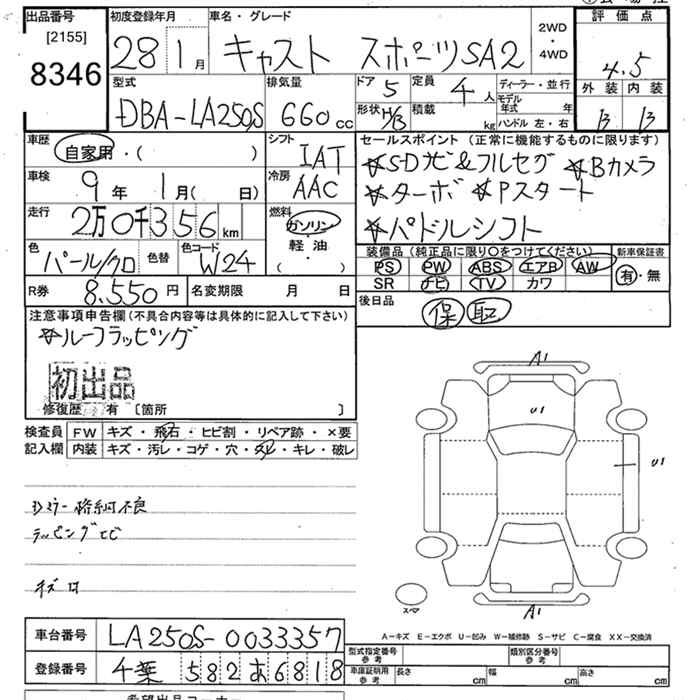 出品番号
[2155]
8346
初度登録年月
28 1月
車名・グレード
キャスト スポーツSA2
2WD
・
4WD
評価点
4.5
外装 内装
B B
型式
DBA-LA250S
排気量
660cc
ドア 5
形状 H/B
定員 4人
積載 kg
ディーラー・並行
モデル年式 年
ハンドル 左・右
車歴
自家用・( )
シフト
IAT
セールスポイント (正常に機能するものに限ります)
☆SDナビ&フルセグ ☆Bカメラ
☆ターボ ☆Pスタート
☆パドルシフト
車検
9年 1月( 日)
冷房
AAC
走行
2万0千356km
燃料
ガソリン
・
軽油
( )
色
パール/クロ
色替
色コード
W24
装備品(純正品に限り○をつけてください)
PS PW ABS エアB AW
SR ナビ TV カワ
新車保証書
有・無
R券
8.550円
名変期限 月 日
後日品
保 取
注意事項申告欄(不具合内容等は具体的に記入して下さい)
☆ルーフラッピング
初出品
修復歴 有 〔箇所 〕
検査員
記入欄
FW キズ・飛石・ヒビ割・リペア跡・×要
内装 キズ・汚レ・コゲ・穴・スレ・キレ・破レ
Dミラー格納不良
ラッピングヒビ
キズ凹
A1
U1
U1
A1
スペア
A-キズ E-エクボ U-凹み W-補修跡 S-サビ C-腐食 XX-交換済
車台番号
LA250S-0033357
登録番号
千葉 582あ6818
型式指定番号
参考
類別区分番号
参考
車庫証明用
参考
長さ cm 幅 cm 高さ cm
希望出品コーナー